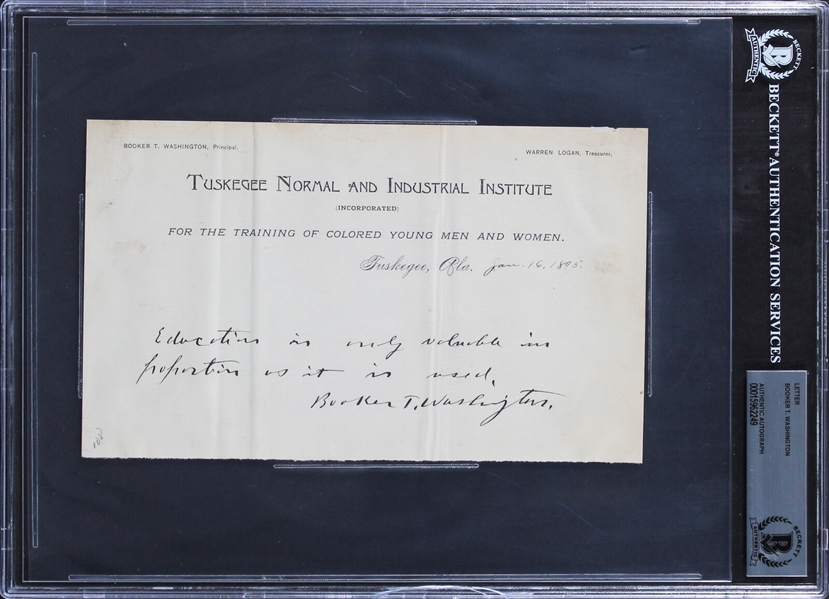 BOOKER T. WASHINGTON, Principal.
WARREN LOGAN, Treasurer.
TUSKEGEE NORMAL AND INDUSTRIAL INSTITUTE
(INCORPORATED)
FOR THE TRAINING OF COLORED YOUNG MEN AND WOMEN.
Tuskegee, Ala. Jan. 16, 1895.
Education is only valuable in
proportion as it is used.
Booker T. Washington.
BECKETT
AUTHENTIC
BECKETT AUTHENTICATION SERVICES
LETTER
BOOKER T. WASHINGTON
AUTHENTIC AUTOGRAPH
00015962249
BECKETT
AUTHENTIC